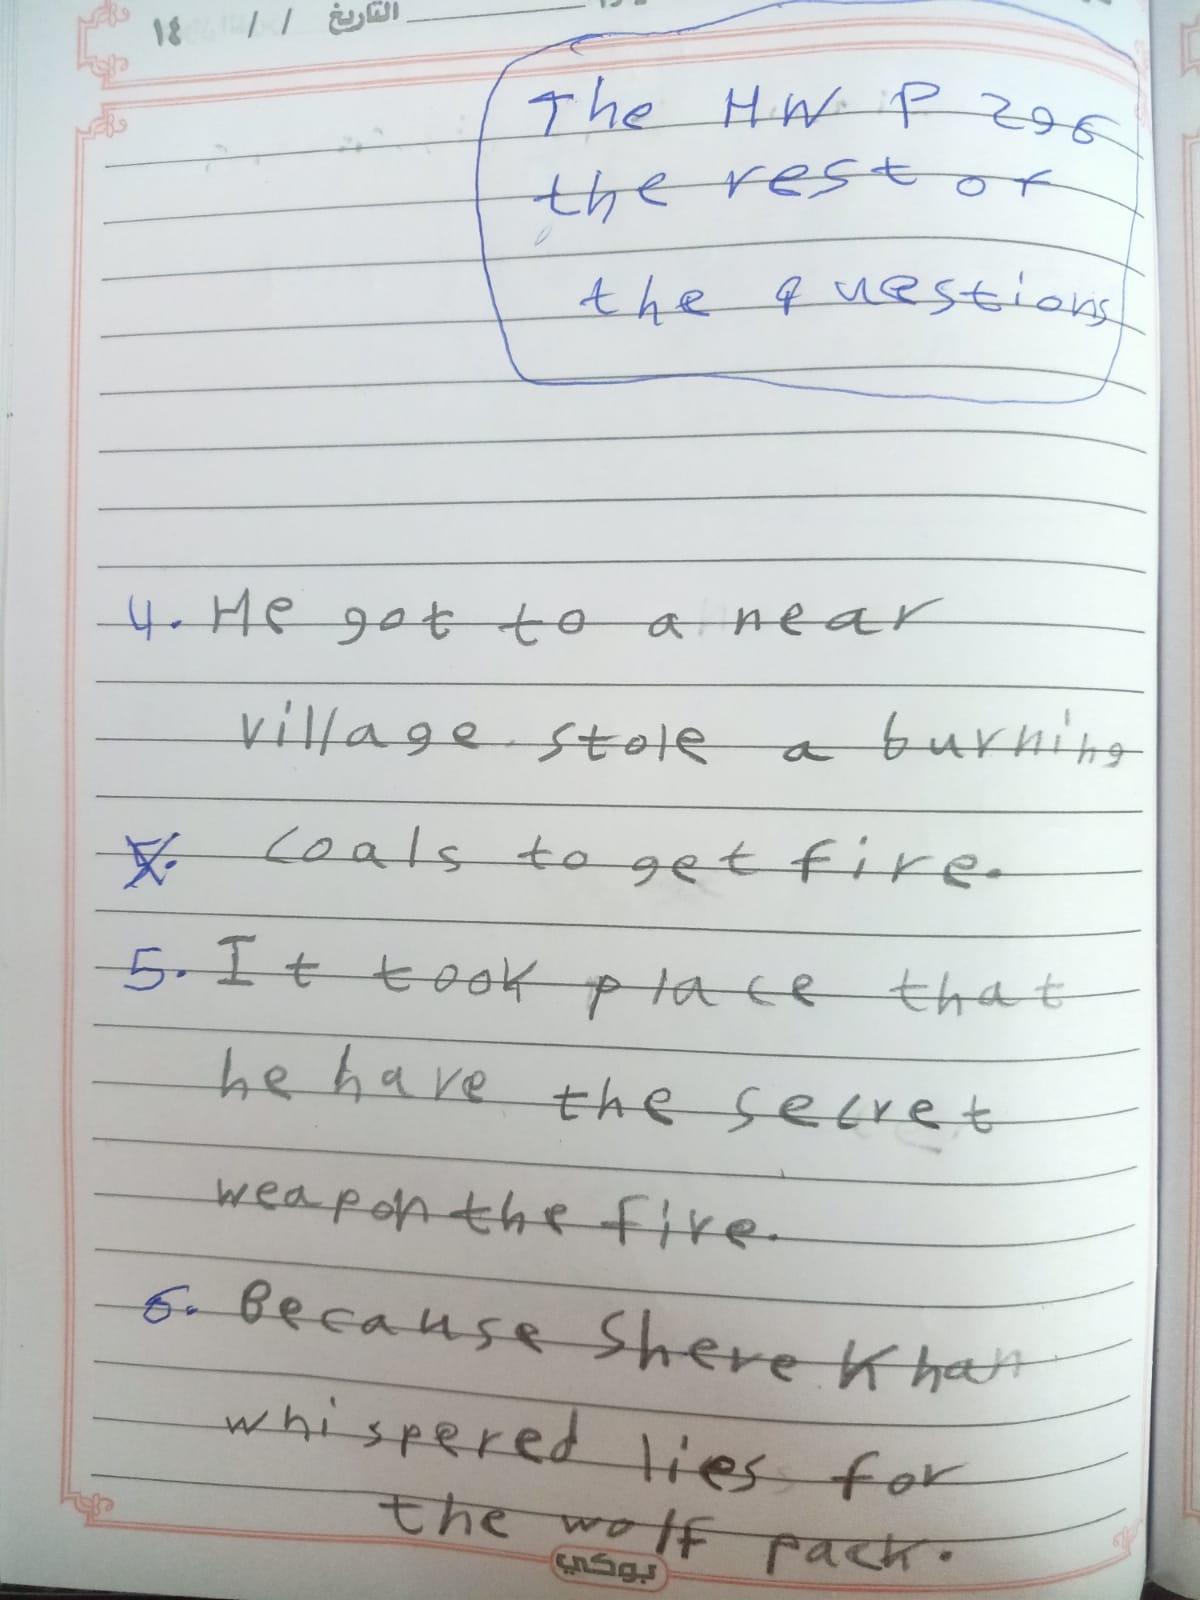 التاريخ / / ١٤
The HW P 296
the rest of
the questions
4. He got to a near
village stole a burning
coals to get fire.
5. It took place that
he have the secret
weapon the fire.
6. Because Shere Khan
whispered lies for
the wolf pack.
بوكي